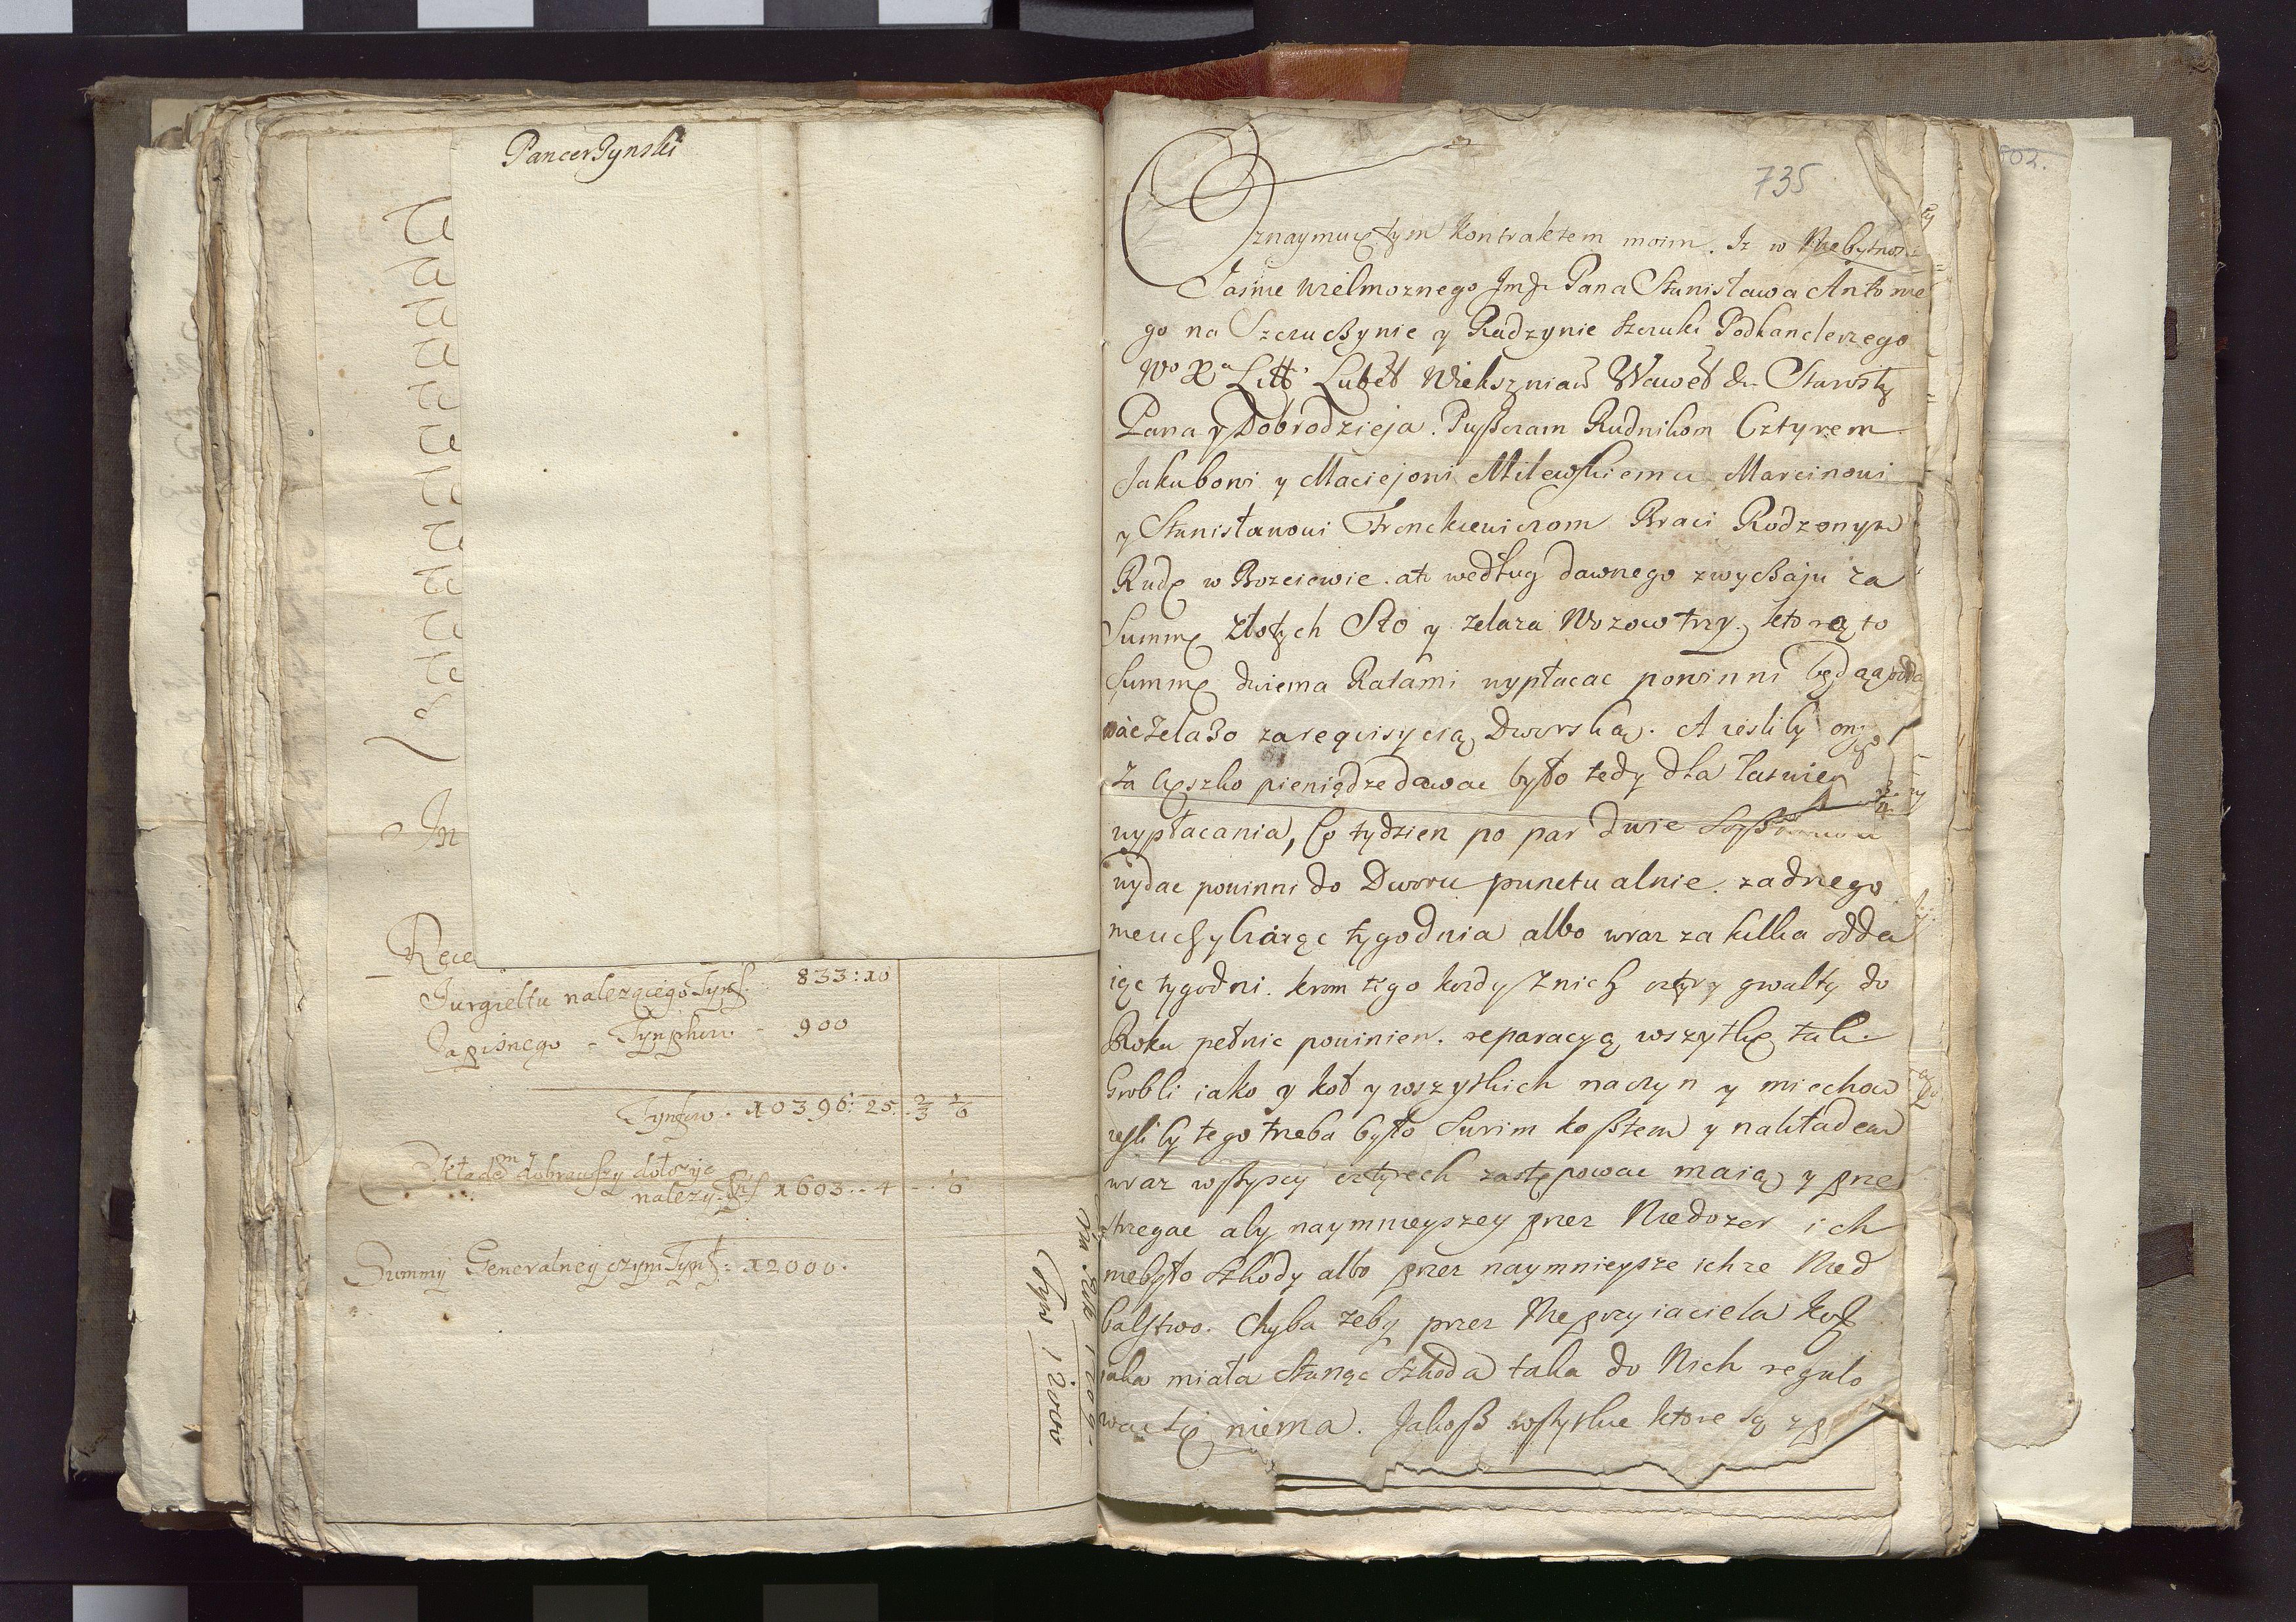 Pancerzynski
Rece
Jurgieltu nalezącego Tynf. 833:10
Zapisnego - Tynphow - 900
Tynfow. 10396: 25. 2/3 1/6
dołozyc
nalezy. Tynf 1603..4 - . 6
Summy Generalney czym Tynf: 12000.
Tynf 12000
802.
735
Oznaymuię tym kontraktem moim. Iz w Niebytnos
Jasnie Wielmoznego Jmſc Pana Stanisława Antonie
go na Szczuczynie y Radzynie Szczuki Podkanclerzego
Wo Xa Litt. Lubel Wiekszniań Wawel & Starosty
Pana y Dobrodzieja. Pusczam Rudnikom Cztyrem
Jakubowi y Maciejowi Milewskiemu Marcinowi
y Stanisławowi Frenckiewiczom Braci Rodzonym
Rudę w Bozeiewie. ato według dawnego zwyczaju za
Summę złotych Sto y zelaza Wozow trzy. ktorą to
Summę dwiema Ratami wypłacac powinni będą a odda
wac zelazo za requisycią Dworską. A iesliby
za cięszko pieniądze dawac było tedy dla łatwiey
wypłacania, Co tydzien po par dwie
wydac powinni do Dworu punctualnie. zadnego
nieuchybiaiąc tygodnia albo wraz za kilka odda
iąc tygodni. krom tego kozdy z nich cztyry gwałty do
Roku pełnic powinien. reparacyą wszytkę tak
Grobli iako y koł y wszytkich naczyn y miechow
iesliby tego trzeba było swoim kosztem y nakładem
wraz wszyscy cztyrech zastępowac maią y prze
strzegac aby naymnieyszey przez Niedozor ich
niebyło szkody albo przez naymnieysze ichze Nied
balstwo. Chyba zeby przez Nieprzyiaciela
iaka miała stanąc szkoda taka do Nich regulo
wac się niema. Jakosz wszytkie ktore są